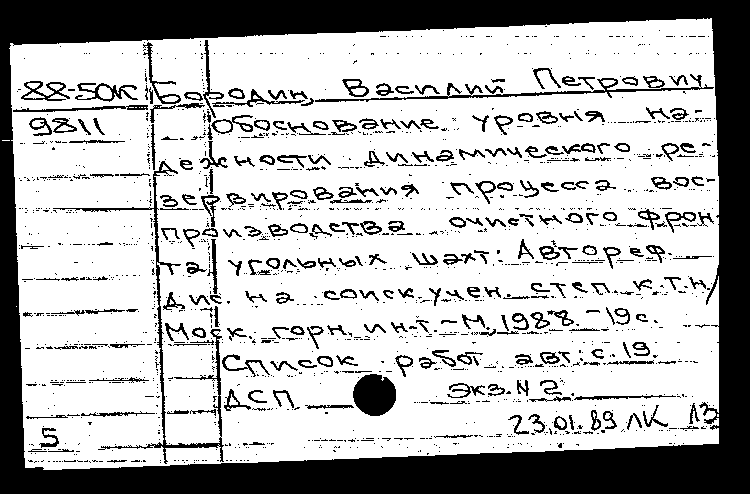 88-50К Бородин, Василий Петрович.
9811 Обоснование уровня на-
дежности динамического ре-
зервирования процесса вос-
производства очистного фрон-
та угольных шахт: Автореф.
дис. на соиск учен. степ. к.т.н/
Моск. горн. ин-т. - М, 1988. - 19с.
Список работ авт.: с. 19.
ДСП Экз. N 2.
23.01.89 ЛК
5